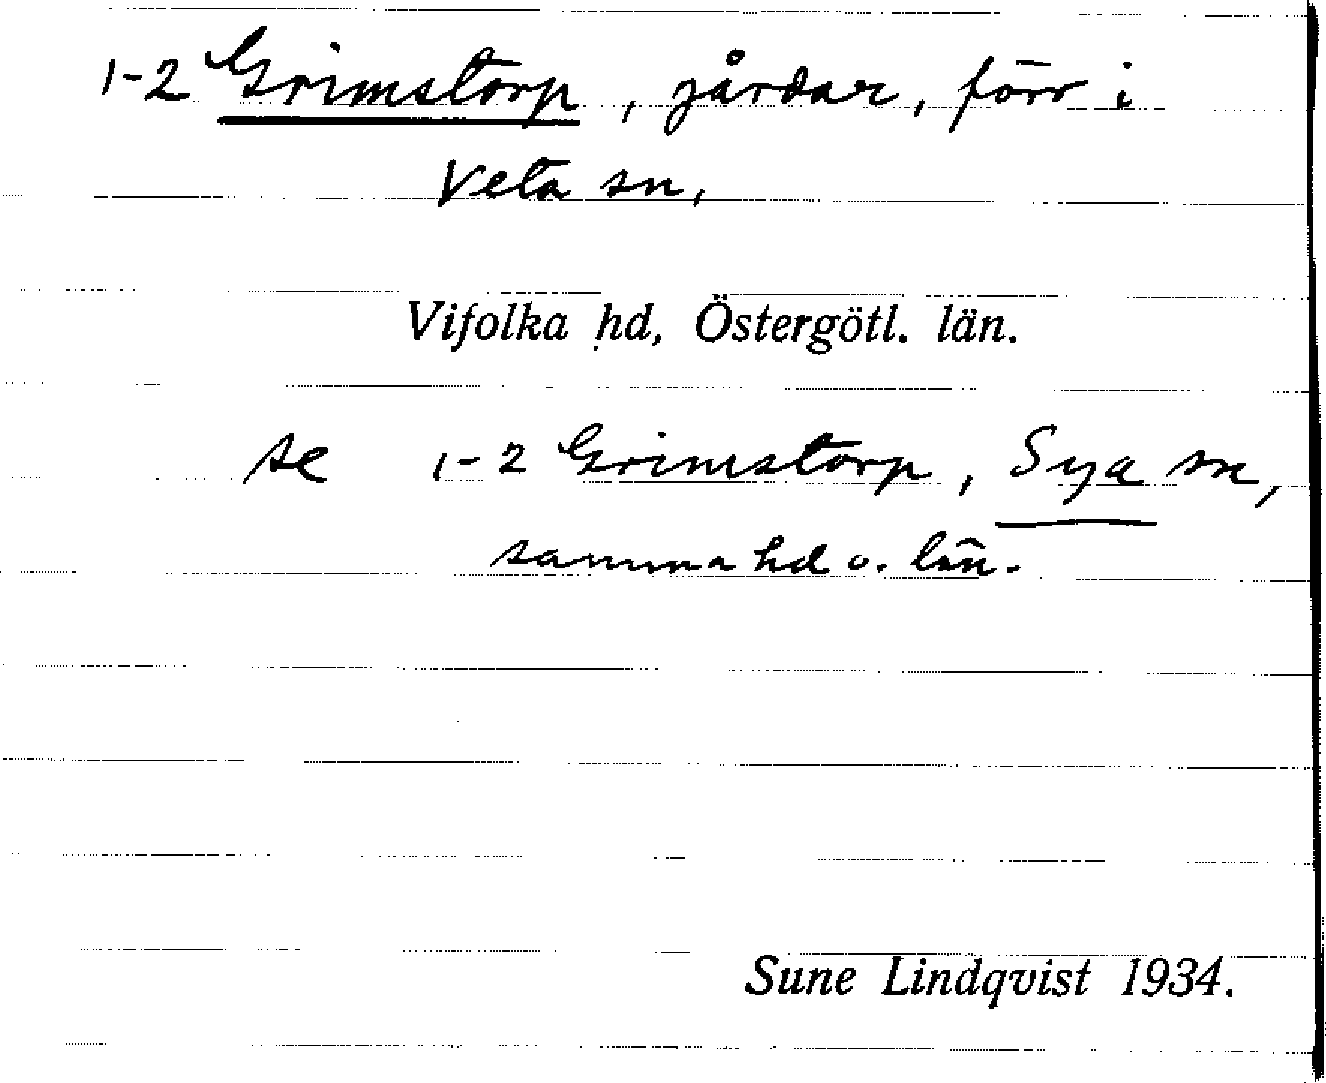 1-2 Grimstorp, gårdar, förr i
Veta sn,
Vifolka hd, Östergötl. län.
se 1-2 Grimstorp, Sya sn,
samma hd o. län.
Sune Lindqvist 1934.